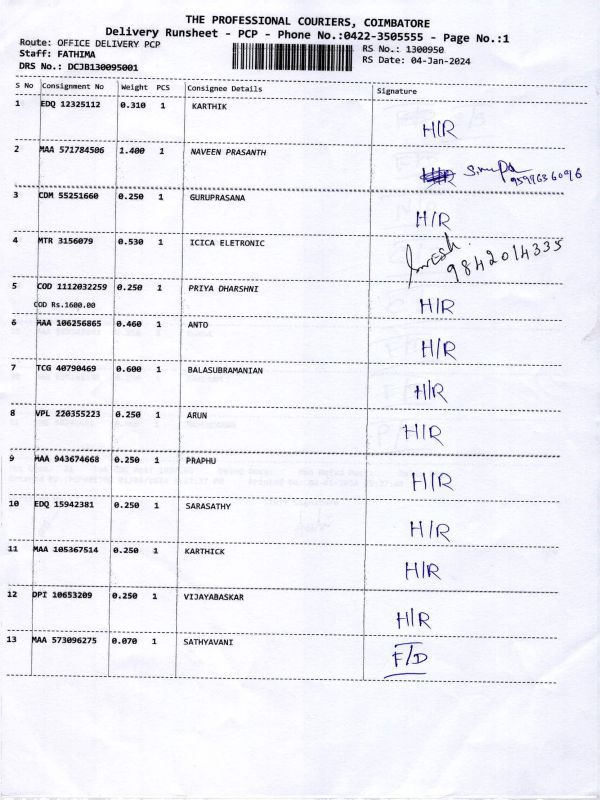 THE PROFESSIONAL COURIERS, COIMBATORE
Delivery Runsheet - PCP - Phone No.:0422-3505555 - Page No.:1
Route: OFFICE DELIVERY PCP RS No.: 1300950
Staff: FATHIMA RS Date: 04-Jan-2024
DRS No.: DCJB130095001
S No Consignment No Weight PCS Consignee Details Signature
1 EDQ 12325112 0.310 1 KARTHIK H/R
2 MAA 571784506 1.400 1 NAVEEN PRASANTH 9597636096
3 CDM 55251660 0.250 1 GURUPRASANA H/R
4 MTR 3156079 0.530 1 ICICA ELETRONIC 9842014335
5 COD 1112032259 0.250 1 PRIYA DHARSHNI H/R
COD Rs.1600.00
6 MAA 106256865 0.460 1 ANTO H/R
7 TCG 40790469 0.600 1 BALASUBRAMANIAN H/R
8 VPL 220355223 0.250 1 ARUN H/R
9 MAA 943674668 0.250 1 PRAPHU H/R
10 EDQ 15942381 0.250 1 SARASATHY H/R
11 MAA 105367514 0.250 1 KARTHICK H/R
12 DPI 10653209 0.250 1 VIJAYABASKAR H/R
13 MAA 573096275 0.070 1 SATHYAVANI F/D